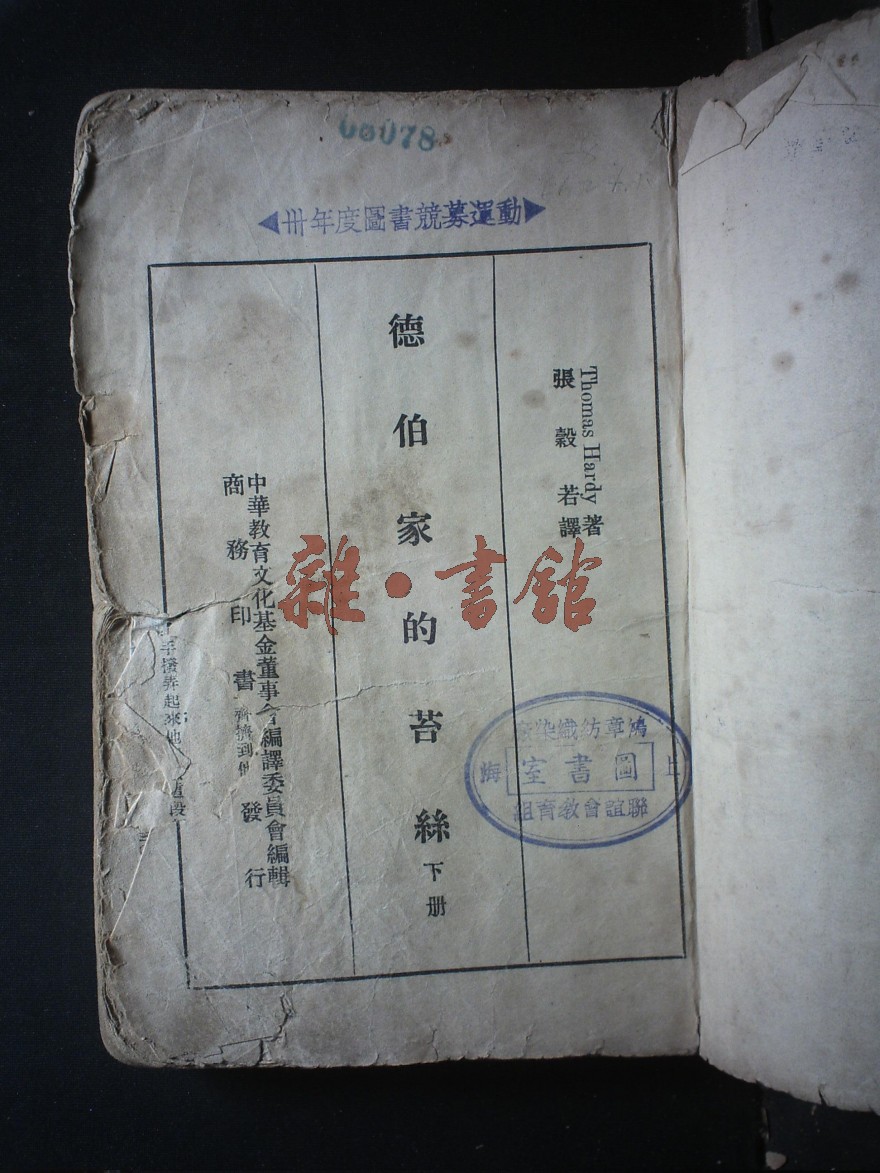 08078
動運募競書圖度年卅
Thomas Hardy 著
張穀若譯
德伯家的苔絲
下册
中華教育文化基金董事會編譯委員會編輯
商務印書 發行
雜·書館
鴻章紡織染廠
上海
圖書室
聯誼會教育組